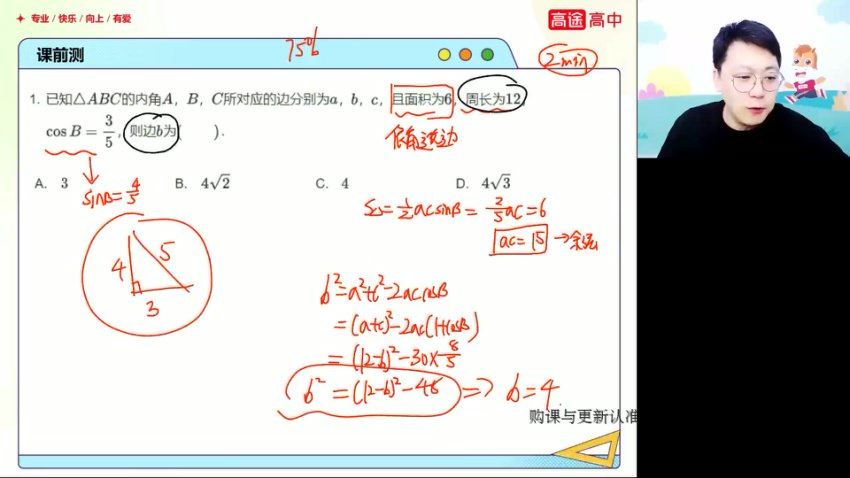 专业 / 快乐 / 向上 / 有爱
高途 高中
课前测
75%
2min
1. 已知△ABC的内角A，B，C所对应的边分别为a，b，c，且面积为6，周长为12，
cos B = 3/5，则边b为(  ).
保角选边
A. 3 B. 4√2 C. 4 D. 4√3
sinB = 4/5
S△ = 1/2 acsinB = 2/5 ac = 6
ac = 15 →余弦
4 5
3
b² = a²+c²-2accosB
= (a+c)²-2ac(1+cosB)
= (12-b)²-30×8/5
b² = (12-b)²-48 => b=4
购课与更新认准